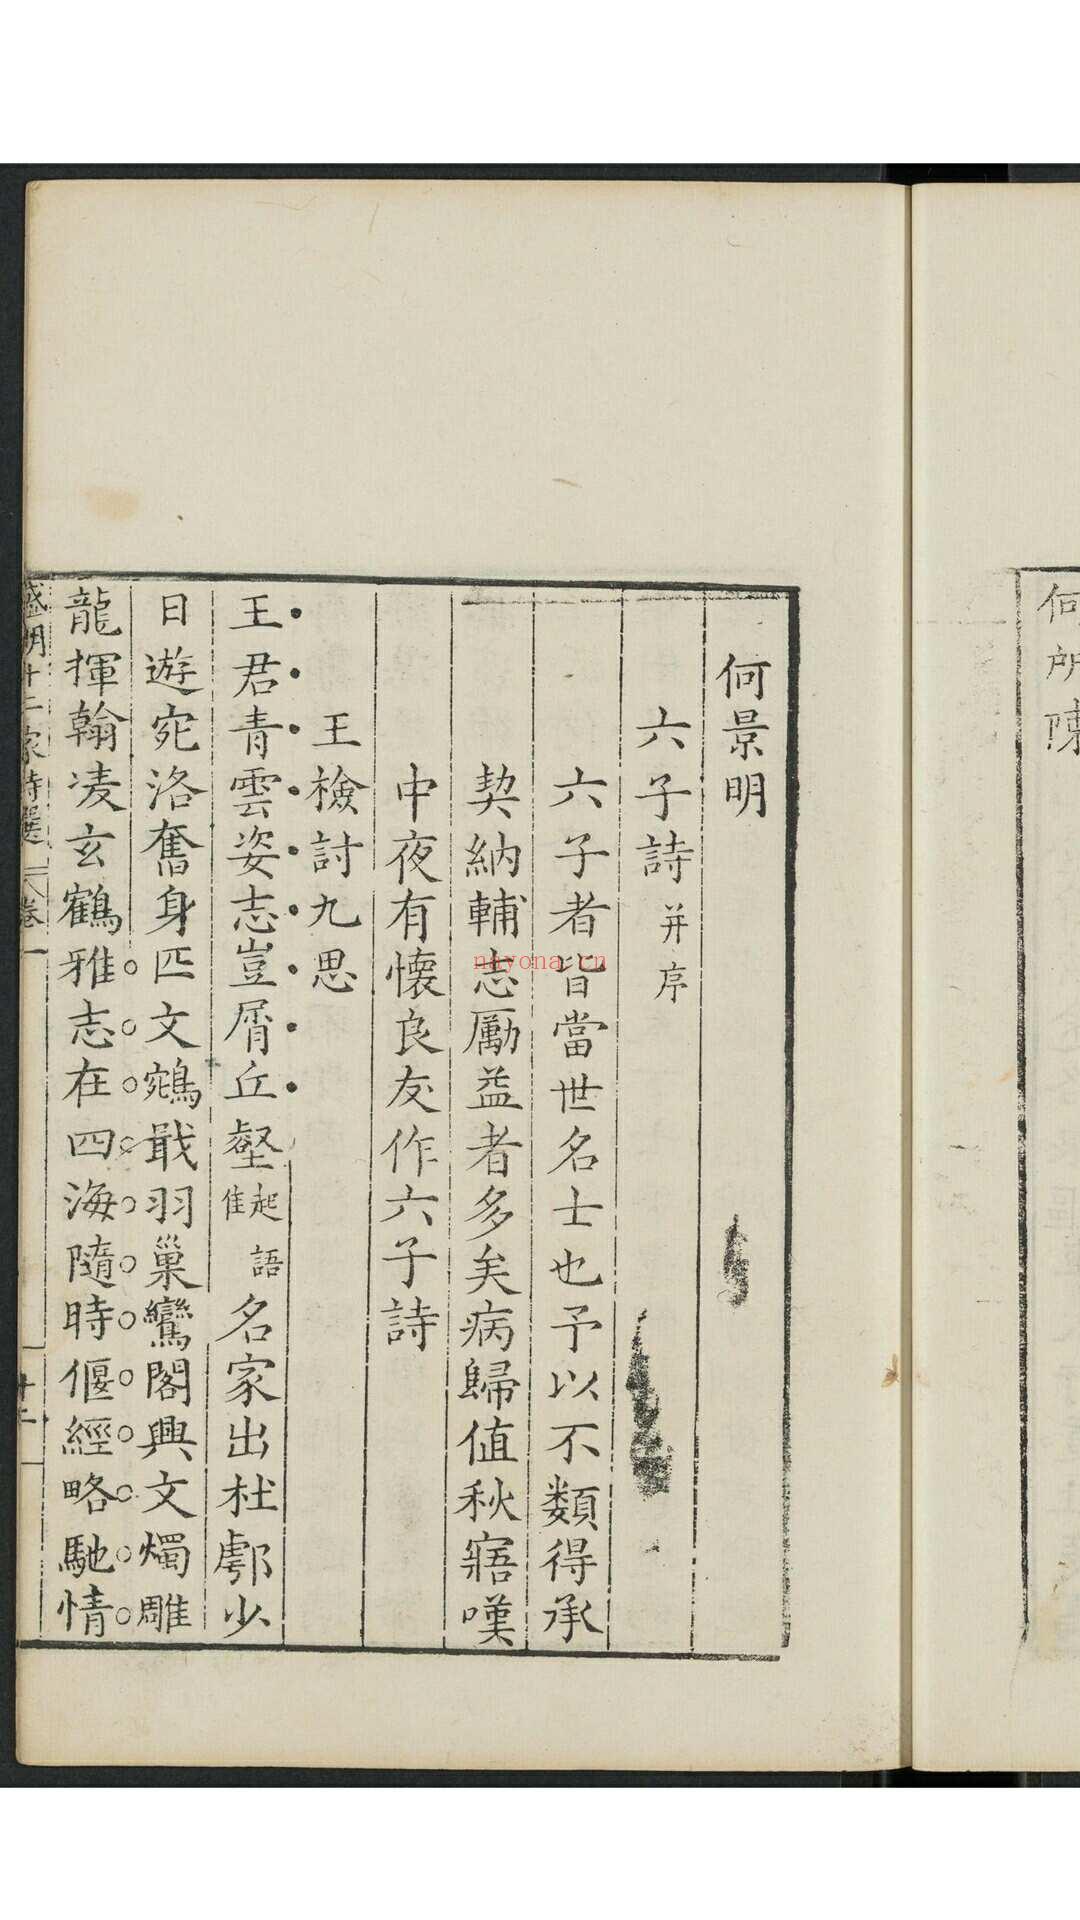 何所陳
何景明
六子詩 并序
六子者皆當世名士也予以不類得承
契納輔志勵益者多矣病歸值秋寤嘆
中夜有懷良友作六子詩
王檢討九思
王君青雲姿志豈屑丘壑起語佳名家出杜鄠少
日遊宛洛奮身匹文鵷戢羽巢鸞閣興文燭雕
龍揮翰凌玄鶴雅志在四海隨時偃經略馳情
盛明十二家詩選 卷一 十二
nayona.cn